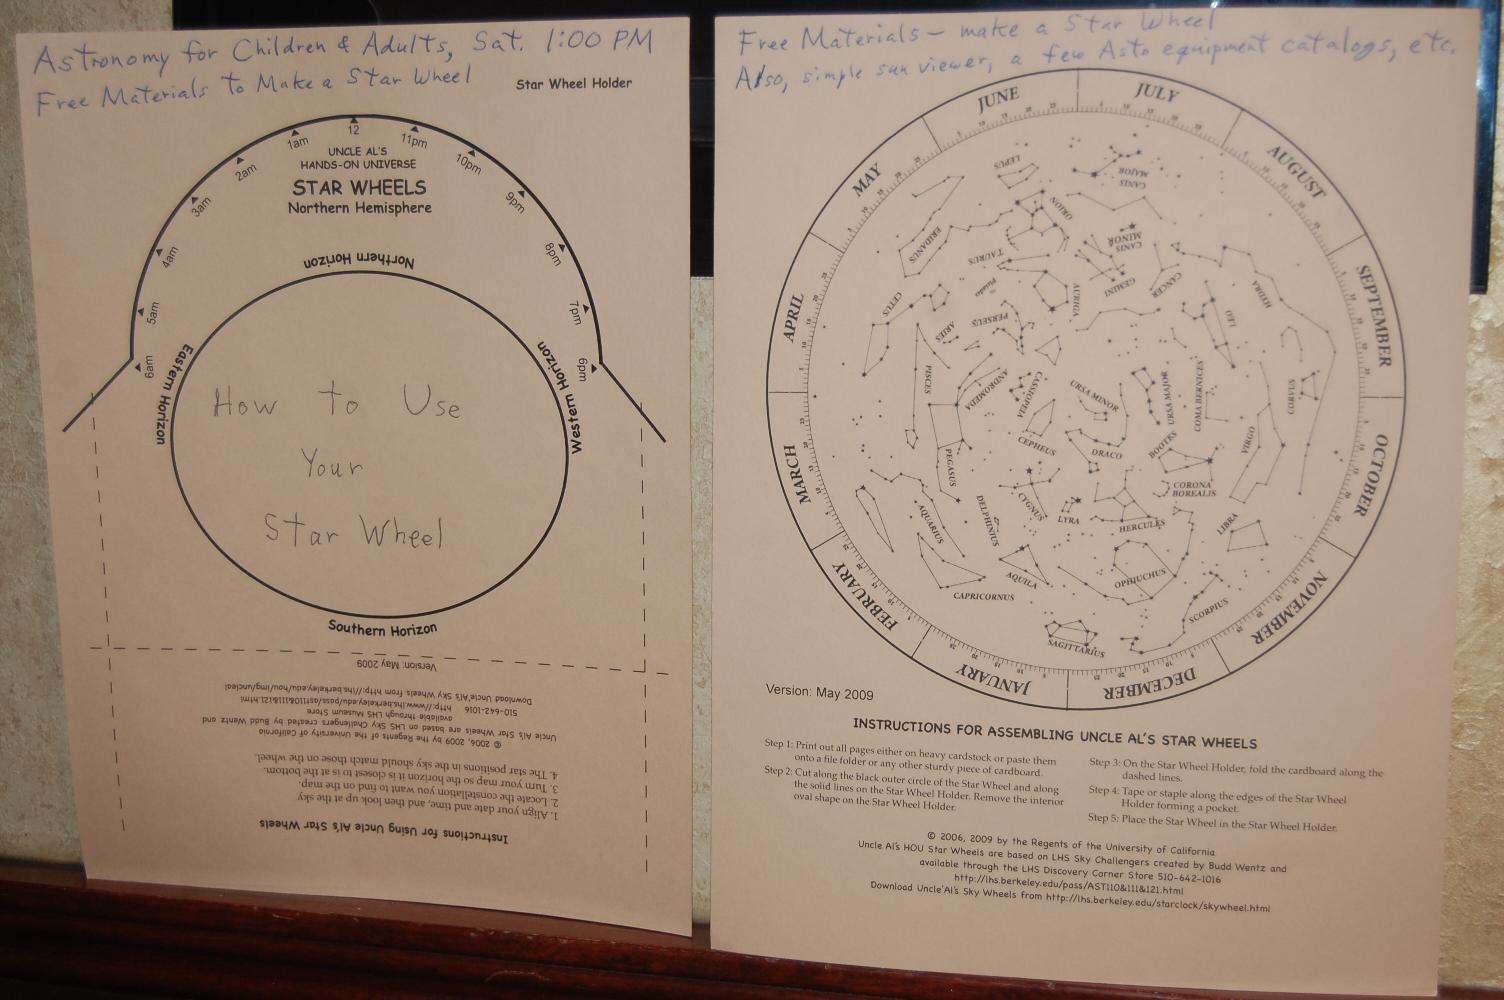 Astronomy for Children & Adults, Sat. 1:00 PM
Free Materials to Make a Star Wheel
Star Wheel Holder
12
1am
11pm
2am
10pm
3am
9pm
4am
8pm
5am
7pm
6am
6pm
UNCLE AL'S
HANDS-ON UNIVERSE
STAR WHEELS
Northern Hemisphere
Northern Horizon
Eastern Horizon
Western Horizon
How to Use
Your
Star Wheel
Southern Horizon
Version: May 2009
Instructions for Using Uncle Al's Star Wheels
1. Align your date and time, and then look up at the sky
2. Locate the constellation you want to find on the map.
3. Turn your map so the horizon it is closest to is at the bottom.
4. The star positions in the sky should match those on the wheel.
© 2006, 2009 by the Regents of the University of California
Uncle Al's Star Wheels are based on LHS Sky Challengers created by Budd Wentz and
available through LHS Museum Store
510-642-1016 http://www.lhs.berkeley.edu/pass/ast110&111&121.html
Download Uncle'Al's Sky Wheels from http://lhs.berkeley.edu/hou/img/uncleal
Free Materials - make a Star Wheel
Also, simple sun viewer, a few Asto equipment catalogs, etc.
JUNE
JULY
MAY
AUGUST
APRIL
SEPTEMBER
MARCH
OCTOBER
FEBRUARY
NOVEMBER
JANUARY
DECEMBER
LEPUS
CANIS
MAJOR
ORION
ERIDANUS
TAURUS
CANIS
MINOR
CETUS
Pleiades
AURIGA
GEMINI
CANCER
HYDRA
ARIES
PERSEUS
LEO
PISCES
ANDROMEDA
CASSIOPEIA
URSA MINOR
URSA MAJOR
COMA BERNICES
CORVUS
CEPHEUS
DRACO
BOOTES
VIRGO
PEGASUS
CYGNUS
LYRA
CORONA
BOREALIS
HERCULES
LIBRA
AQUARIUS
DELPHINIUS
AQUILA
OPHIUCHUS
CAPRICORNUS
SCORPIUS
SAGITTARIUS
Version: May 2009
INSTRUCTIONS FOR ASSEMBLING UNCLE AL'S STAR WHEELS
Step 1: Print out all pages either on heavy cardstock or paste them
onto a file folder or any other sturdy piece of cardboard.
Step 2: Cut along the black outer circle of the Star Wheel and along
the solid lines on the Star Wheel Holder. Remove the interior
oval shape on the Star Wheel Holder.
Step 3: On the Star Wheel Holder, fold the cardboard along the
dashed lines.
Step 4: Tape or staple along the edges of the Star Wheel
Holder forming a pocket.
Step 5: Place the Star Wheel in the Star Wheel Holder.
© 2006, 2009 by the Regents of the University of California
Uncle Al's HOU Star Wheels are based on LHS Sky Challengers created by Budd Wentz and
available through the LHS Discovery Corner Store 510-642-1016
http://lhs.berkeley.edu/pass/AST110&111&121.html
Download Uncle'Al's Sky Wheels from http://lhs.berkeley.edu/starclock/skywheel.html